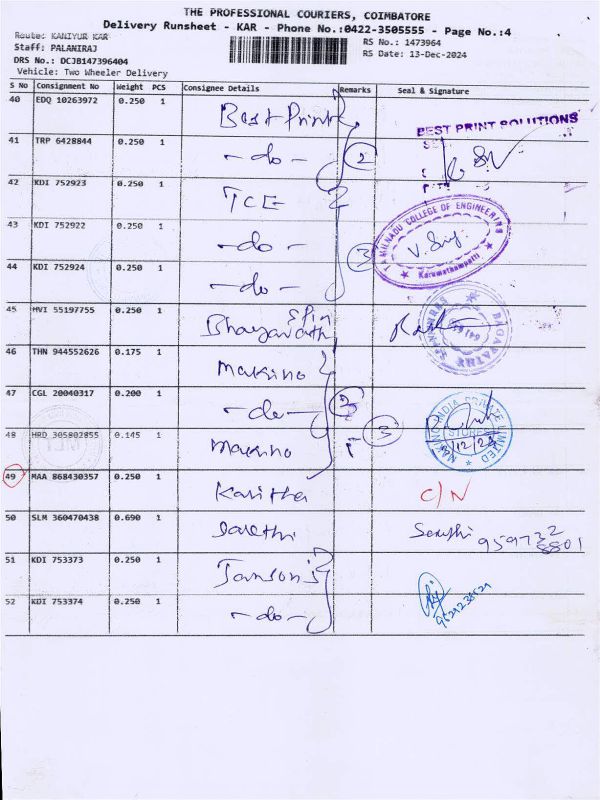 THE PROFESSIONAL COURIERS, COIMBATORE
Delivery Runsheet - KAR - Phone No.:0422-3505555 - Page No.:4
Route: KANIYUR KAR
Staff: PALANIRAJ
DRS No.: DCJB147396404
Vehicle: Two Wheeler Delivery
RS No.: 1473964
RS Date: 13-Dec-2024
S No Consignment No Weight PCS Consignee Details Remarks Seal & Signature
40 EDQ 10263972 0.250 1 Best Print
BEST PRINT SOLUTIONS
41 TRP 6428844 0.250 1 - do - 2
42 KDI 752923 0.250 1 TCE
43 KDI 752922 0.250 1 - do - 3
TAMILNADU COLLEGE OF ENGINEERING
Karumathampatti
44 KDI 752924 0.250 1 - do -
45 HVI 55197755 0.250 1 Bhagavath
641 659
46 THN 944552626 0.175 1 Makino
47 CGL 20040317 0.200 1 - do -
48 HRD 305802855 0.145 1 Makino 3
MAKINO INDIA PRIVATE LIMITED
STORES
49 MAA 868430357 0.250 1 Kavitha C/N
50 SLM 360470438 0.690 1
959732
8801
51 KDI 753373 0.250 1 Janson's
52 KDI 753374 0.250 1 - do -